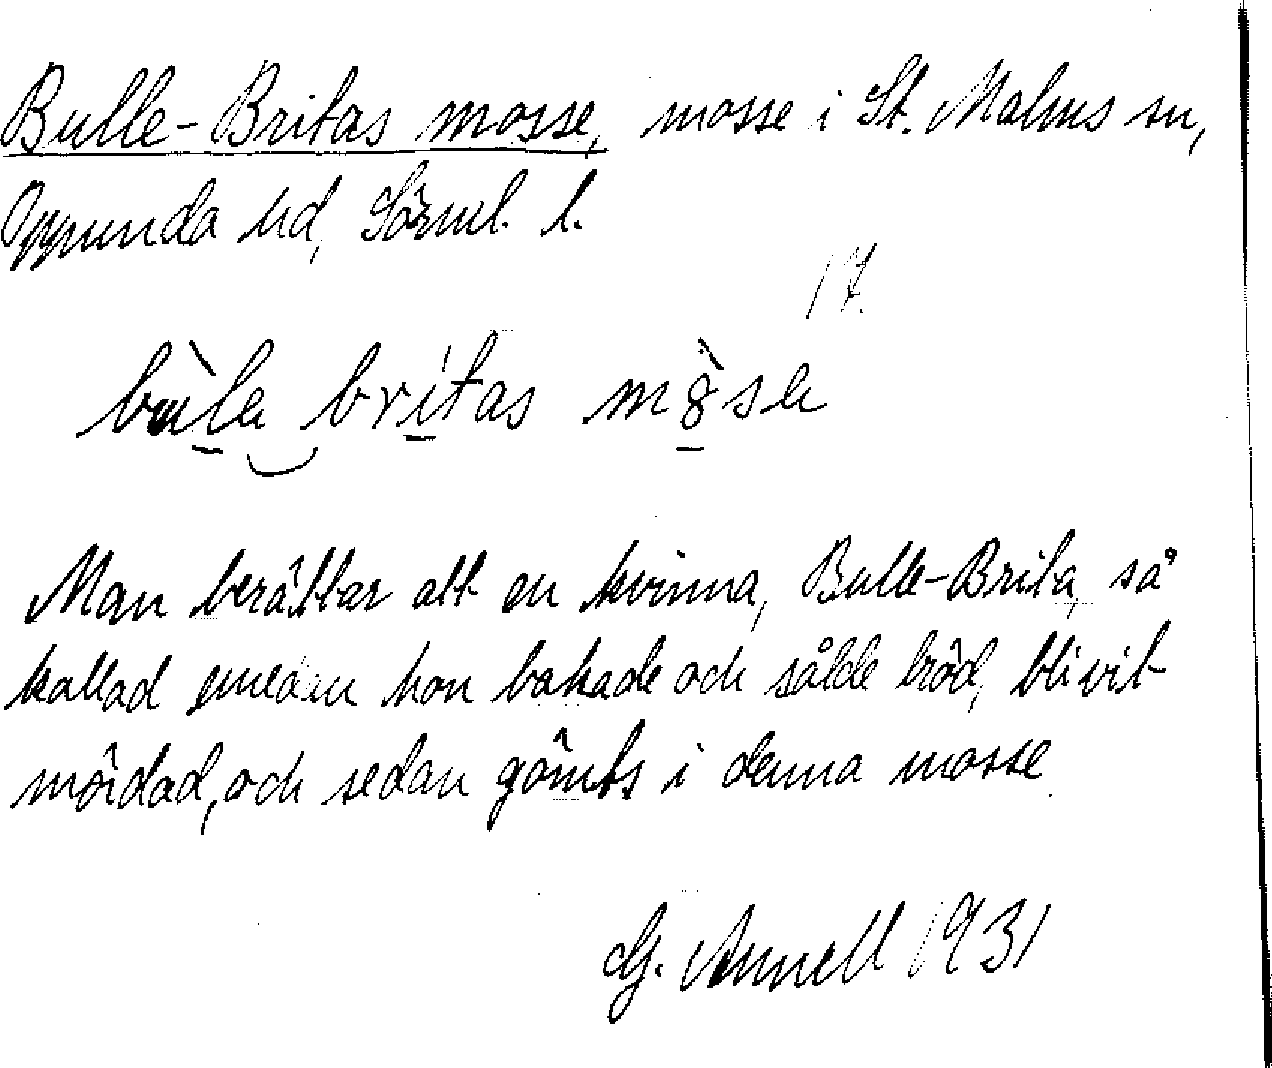 Bulle-Britas mosse, mosse i St. Malms sn,
Oppunda hd, Sörml. l.
17.
bùla britas m8̀sa
Man berättar att en kvinna, Bulle-Brita, så
kallad emedan hon bakade och sålde bröd, blivit
mördad, och sedan gömts i denna mosse.
G. Annell 1931